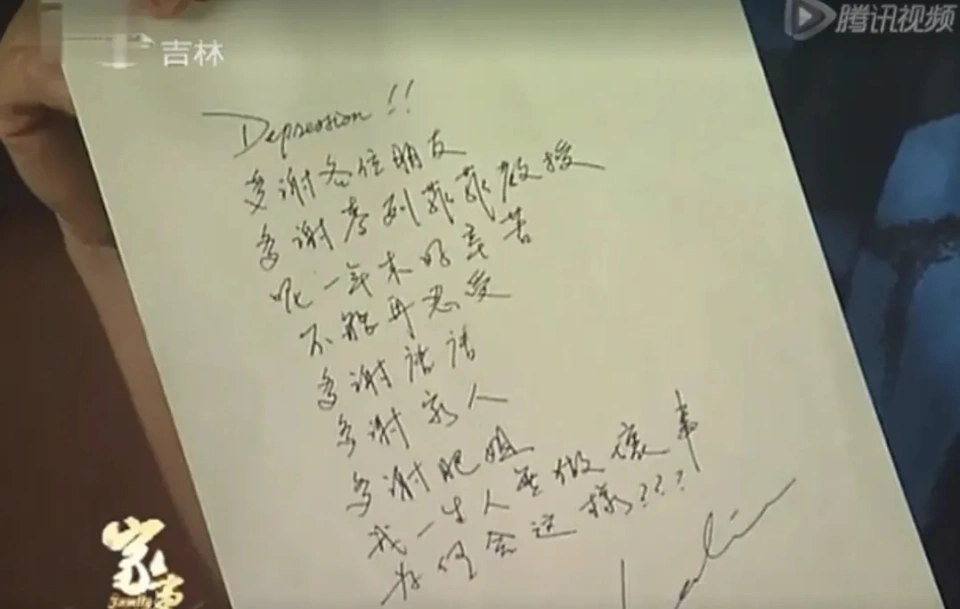 腾讯视频
吉林
Depression!!
多谢各位朋友
多谢麦列菲菲教授
呢一年来好辛苦
不能再忍受
多谢唐唐
多谢家人
多谢肥姐
我一生人無做壞事
为何会这樣???
Leslie
家事
Family